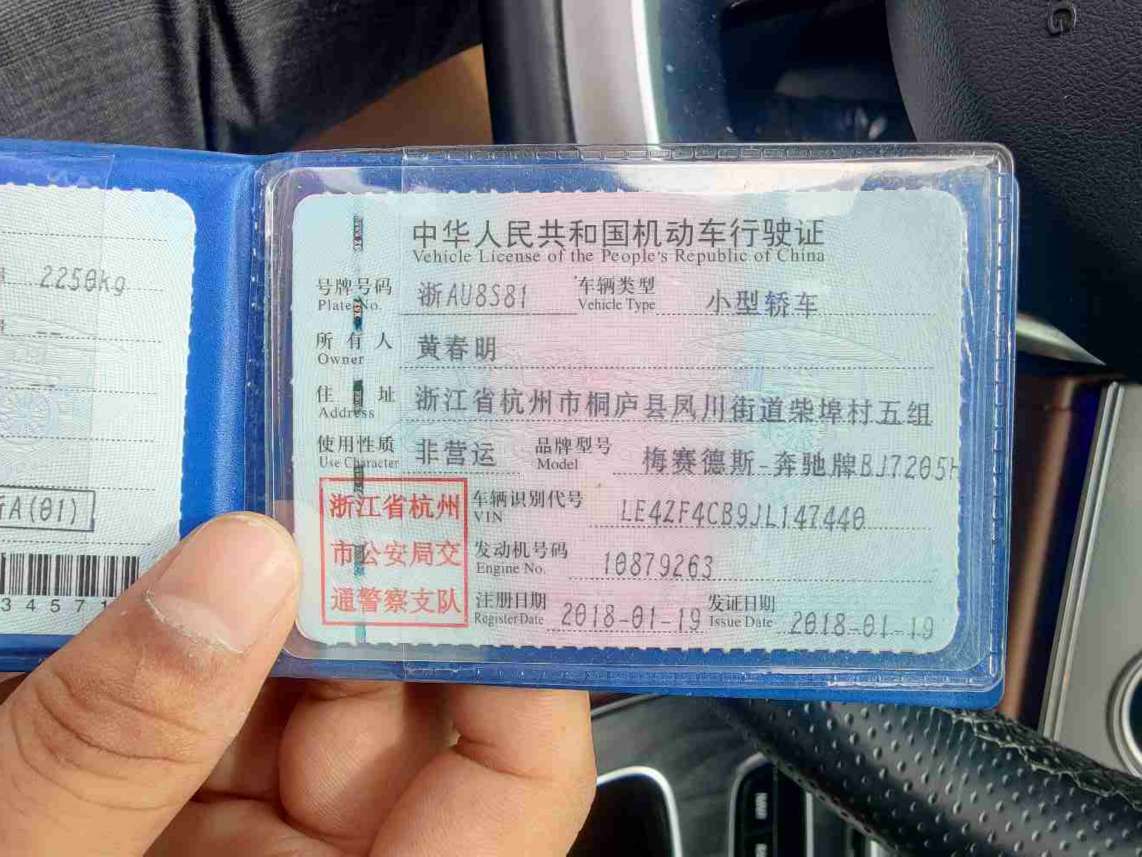 中华人民共和国机动车行驶证
Vehicle License of the People's Republic of China
号牌号码 浙AU8S81 车辆类型 小型轿车
Plate No. Vehicle Type
所有人 黄春明
Owner
住址 浙江省杭州市桐庐县凤川街道柴埠村五组
Address
使用性质 非营运 品牌型号 梅赛德斯-奔驰牌BJ7205H
Use Character Model
浙江省杭州
市公安局交
通警察支队
车辆识别代号 LE4ZF4CB9JL147440
VIN
发动机号码 10879263
Engine No.
注册日期 2018-01-19 发证日期 2018-01-19
Register Date Issue Date
2250kg
A(01)
34571
G